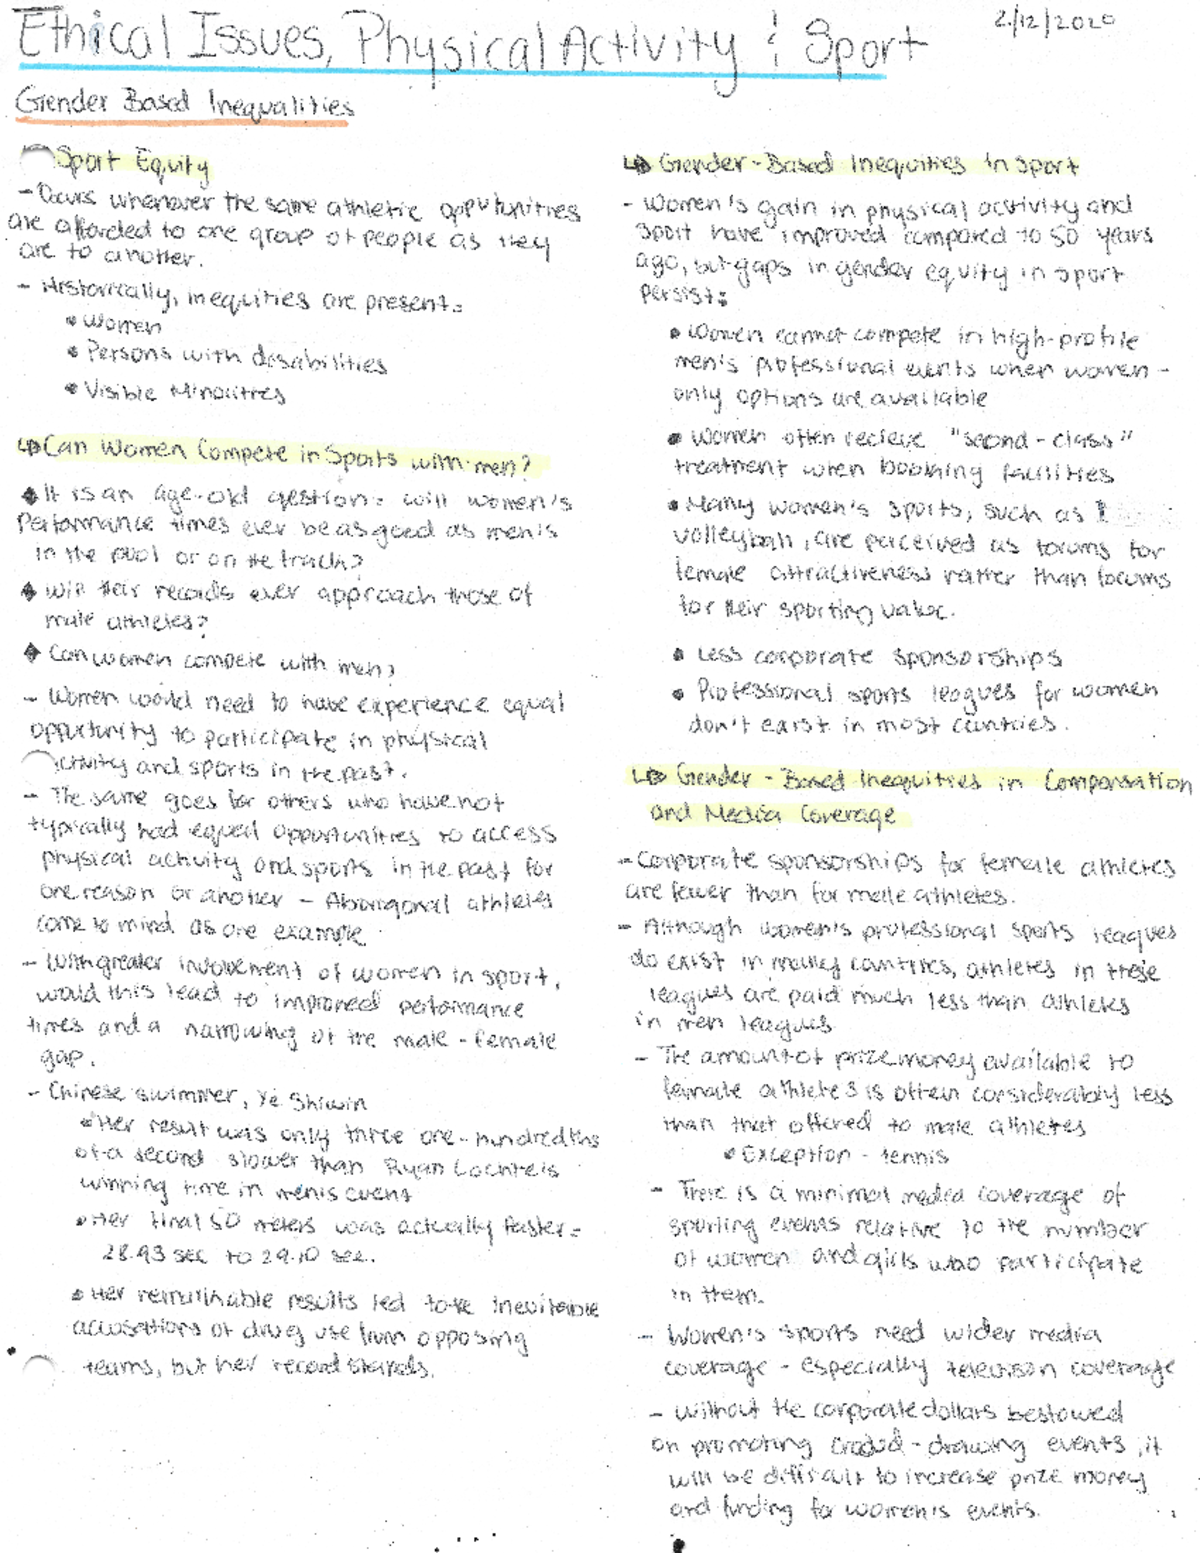 Ethical Issues, Physical Activity & Sport
2/12/2020
Gender Based Inequalities
Sport Equity
- Occurs whenever the same athletic opputunities
are afforded to one group of people as they
are to another.
- Historically, inequities are present:
• Women
• Persons with disabilities
• Visible Minoritres
↳ Can Women Compete in Sports with men?
◆ It is an age-old qestion: will women's
Performance times ever be as good as men's
in the pool or on the track?
◆ Will their records ever approach those of
male athletes?
◆ Can women compete with men?
- Women would need to have experience equal
opportunity to participate in physical
activity and sports in the past.
- The same goes for others who have not
typically had equal opportunities to access
physical activity and sports in the past for
one reason or another - Aboriganal athletes
come to mind as one example.
- With greater involvement of women in sport,
would this lead to improved performance
times and a narrowing of the male - female
gap.
- Chinese swimmer, Ye Shiwin
• Her result was only three one-hundredths
of a second slower than Ryan Lochte's
winning time in men's event
• Her final 50 meters was actually faster =
28.93 sec to 29.10 sec.
• Her remarkable results led to the inevitable
accusations of drug use from opposing
teams, but her record stands.
↳ Gender - Based Inequities in Sport
- Women's gain in physical activity and
sport have improved compared to 50 years
ago, but gaps in gender equity in sport
persist:
• Women cannot compete in high-profile
men's professional events when women -
only options are available
• Women often recieve "second-class"
treatment when booking facilities
• Many women's sports, such as
volleyball, are perceived as forums for
female attractiveness rather than forums
for their sporting value.
• Less corporate sponsorships
• Professional sports leagues for women
don't exist in most countries.
↳ Gender - Based Inequities in Compensation
and Media Coverage
- Corporate sponsorships for female athletes
are fewer than for male athletes.
- Although women's professional sports leagues
do exist in many countries, athletes in these
leagues are paid much less than athletes
in men leagues
- The amount of prize money available to
female athletes is often considerably less
than that offered to male athletes
• Exception - tennis
- There is a minimal media coverage of
sporting events relative to the number
of women and girls who participate
in them.
- Women's sports need wider media
coverage - especially television coverage
- Without the corporate dollars bestowed
on promoting crowd-drawing events, it
will be difficult to increase prize money
and funding for women's events.